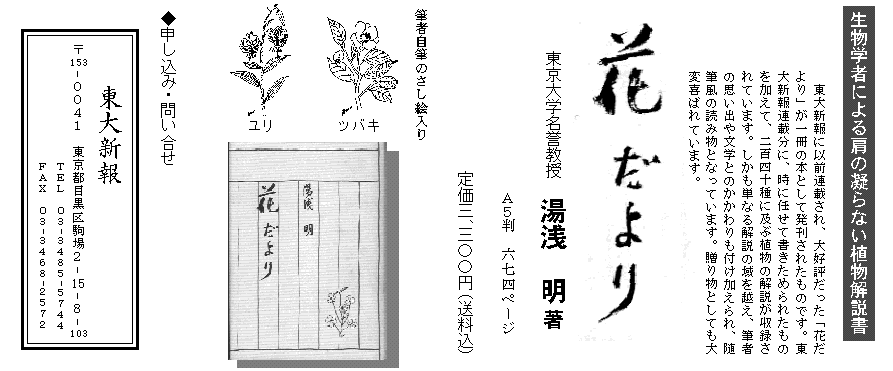 生物学者による肩の凝らない植物解説書
東大新報に以前連載され、大好評だった「花だ
より」が一冊の本として発刊されたものです。東
大新報連載分に、時に任せて書きためられたもの
を加えて、二百四十種に及ぶ植物の解説が収録さ
れています。しかも単なる解説の域を越え、筆者
の思い出や文学とのかかわりも付け加えられ、随
筆風の読み物となっています。贈り物としても大
変喜ばれています。
花だより
東京大学名誉教授 湯浅 明 著
A5判 六七四ページ
定価三、三〇〇円(送料込)
筆者自筆のさし絵入り
ツバキ
ユリ
湯浅 明
花だより
◆申し込み・問い合せ
東大新報
〒153-0041 東京都目黒区駒場2-15-8-103
TEL 03-3485-5744
FAX 03-3468-2572